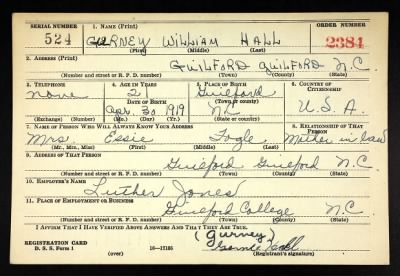 SERIAL NUMBER 1. NAME (Print) ORDER NUMBER
524 GURNEY WILLIAM HALL 2384
(First) (Middle) (Last)
2. ADDRESS (Print)
GUILFORD GUILFORD N.C.
(Number and street or R. F. D. number) (Town) (County) (State)
3. TELEPHONE 4. AGE IN YEARS 5. PLACE OF BIRTH 6. COUNTRY OF CITIZENSHIP
None 21 Guilford
DATE OF BIRTH (Town or county)
Apr. 30 1919 NC U.S.A.
(Exchange) (Number) (Mo.) (Day) (Yr.) (State or country)
7. NAME OF PERSON WHO WILL ALWAYS KNOW YOUR ADDRESS 8. RELATIONSHIP OF THAT PERSON
Mrs Essie Fogle Mother in law
(Mr., Mrs., Miss) (First) (Middle) (Last)
9. ADDRESS OF THAT PERSON
Guilford Guilford N.C.
(Number and street or R. F. D. number) (Town) (County) (State)
10. EMPLOYER'S NAME
Luther Jones
11. PLACE OF EMPLOYMENT OR BUSINESS
Guilford College N C
(Number and street or R. F. D. number) (Town) (County) (State)
I AFFIRM THAT I HAVE VERIFIED ABOVE ANSWERS AND THAT THEY ARE TRUE.
(Gurney)
REGISTRATION CARD
D. S. S. Form 1 16—17105 Hall
(over) (Registrant's signature)